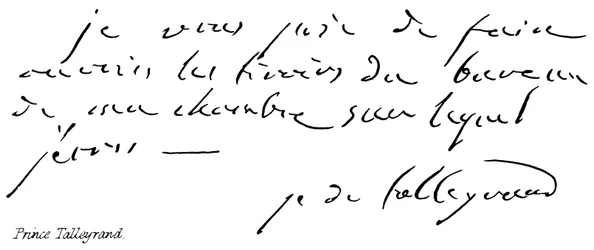 je vous prie de faire
ouvrir les tiroirs du bureau
de ma chambre sur lequel
j'écris —
je de talleyrand
Prince Talleyrand.